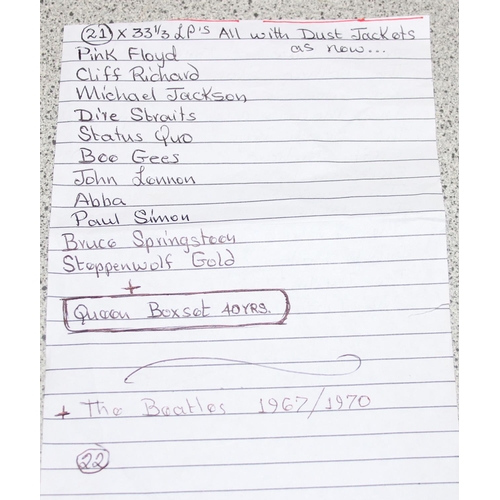 (21) X 33 1/3 LP's All with Dust Jackets
as new...
Pink Floyd
Cliff Richard
Michael Jackson
Dire Straits
Status Quo
Bee Gees
John Lennon
Abba
Paul Simon
Bruce Springsteen
Steppenwolf Gold
+
Queen Boxset 40 YRS.
+ The Beatles 1967/1970
22